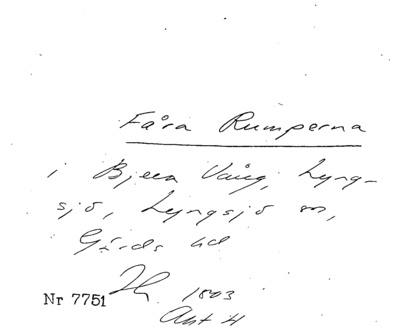 Fåra Rumperna
i Bjera Vång, Lyng-
sjö, Lyngsjö sn,
Gärds hd
Nr 7751 1803
Akt 4